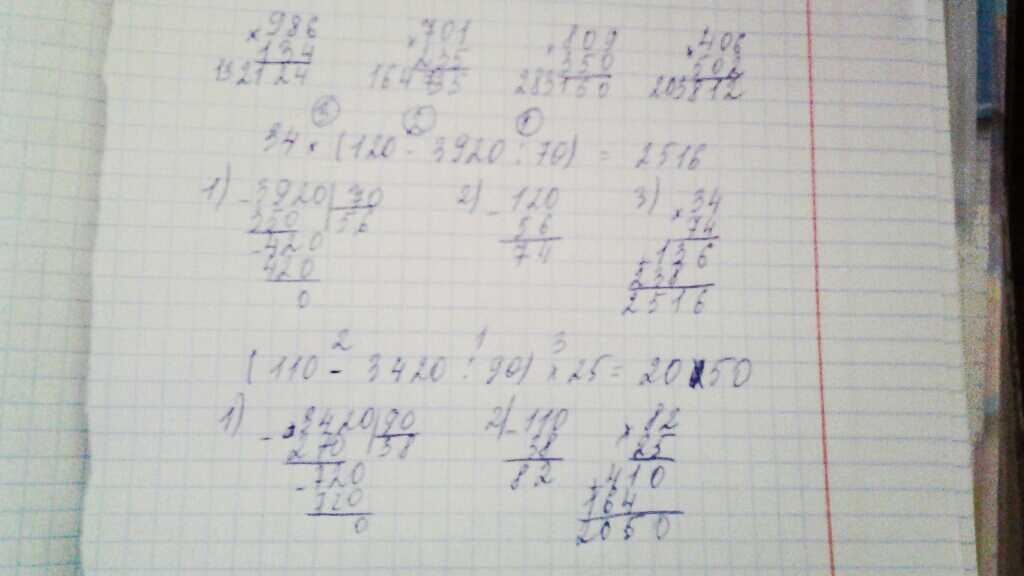 × 986 × 701 × 809 × 406
134 235 350 502
132124 164 35 283150 203812
3 2 1
34 × (120 - 3920 : 70) = 2516
1) - 3920 | 70 2) - 120 3) × 34
350 56 56 74
- 420 74 136
420 238
0 2516
2 1 3
(110 - 3420 : 90) × 25 = 2050
1) - 3420 | 90 2) - 110 × 82
270 38 38 25
- 720 82 410
720 164
0 2050